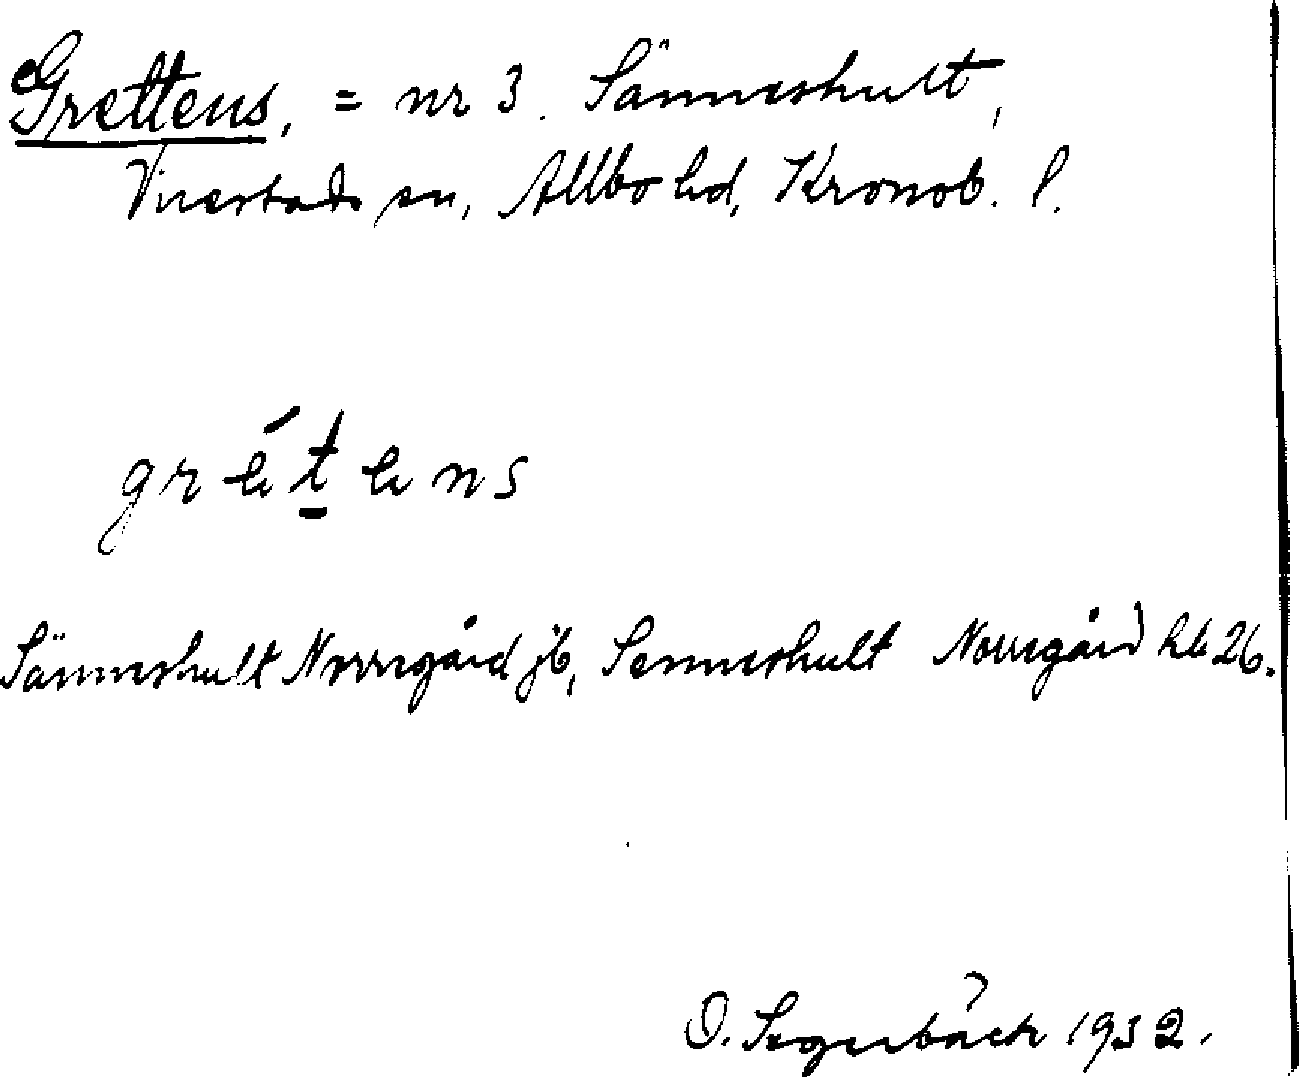 Grettens, = nr 3. Sänneshult,
Virestads sn, Allbo hd, Kronob. l.
grétens
Sänneshult Norregård jb, Senneshult Norregård hb 26.
O. Segerbäck 1932.